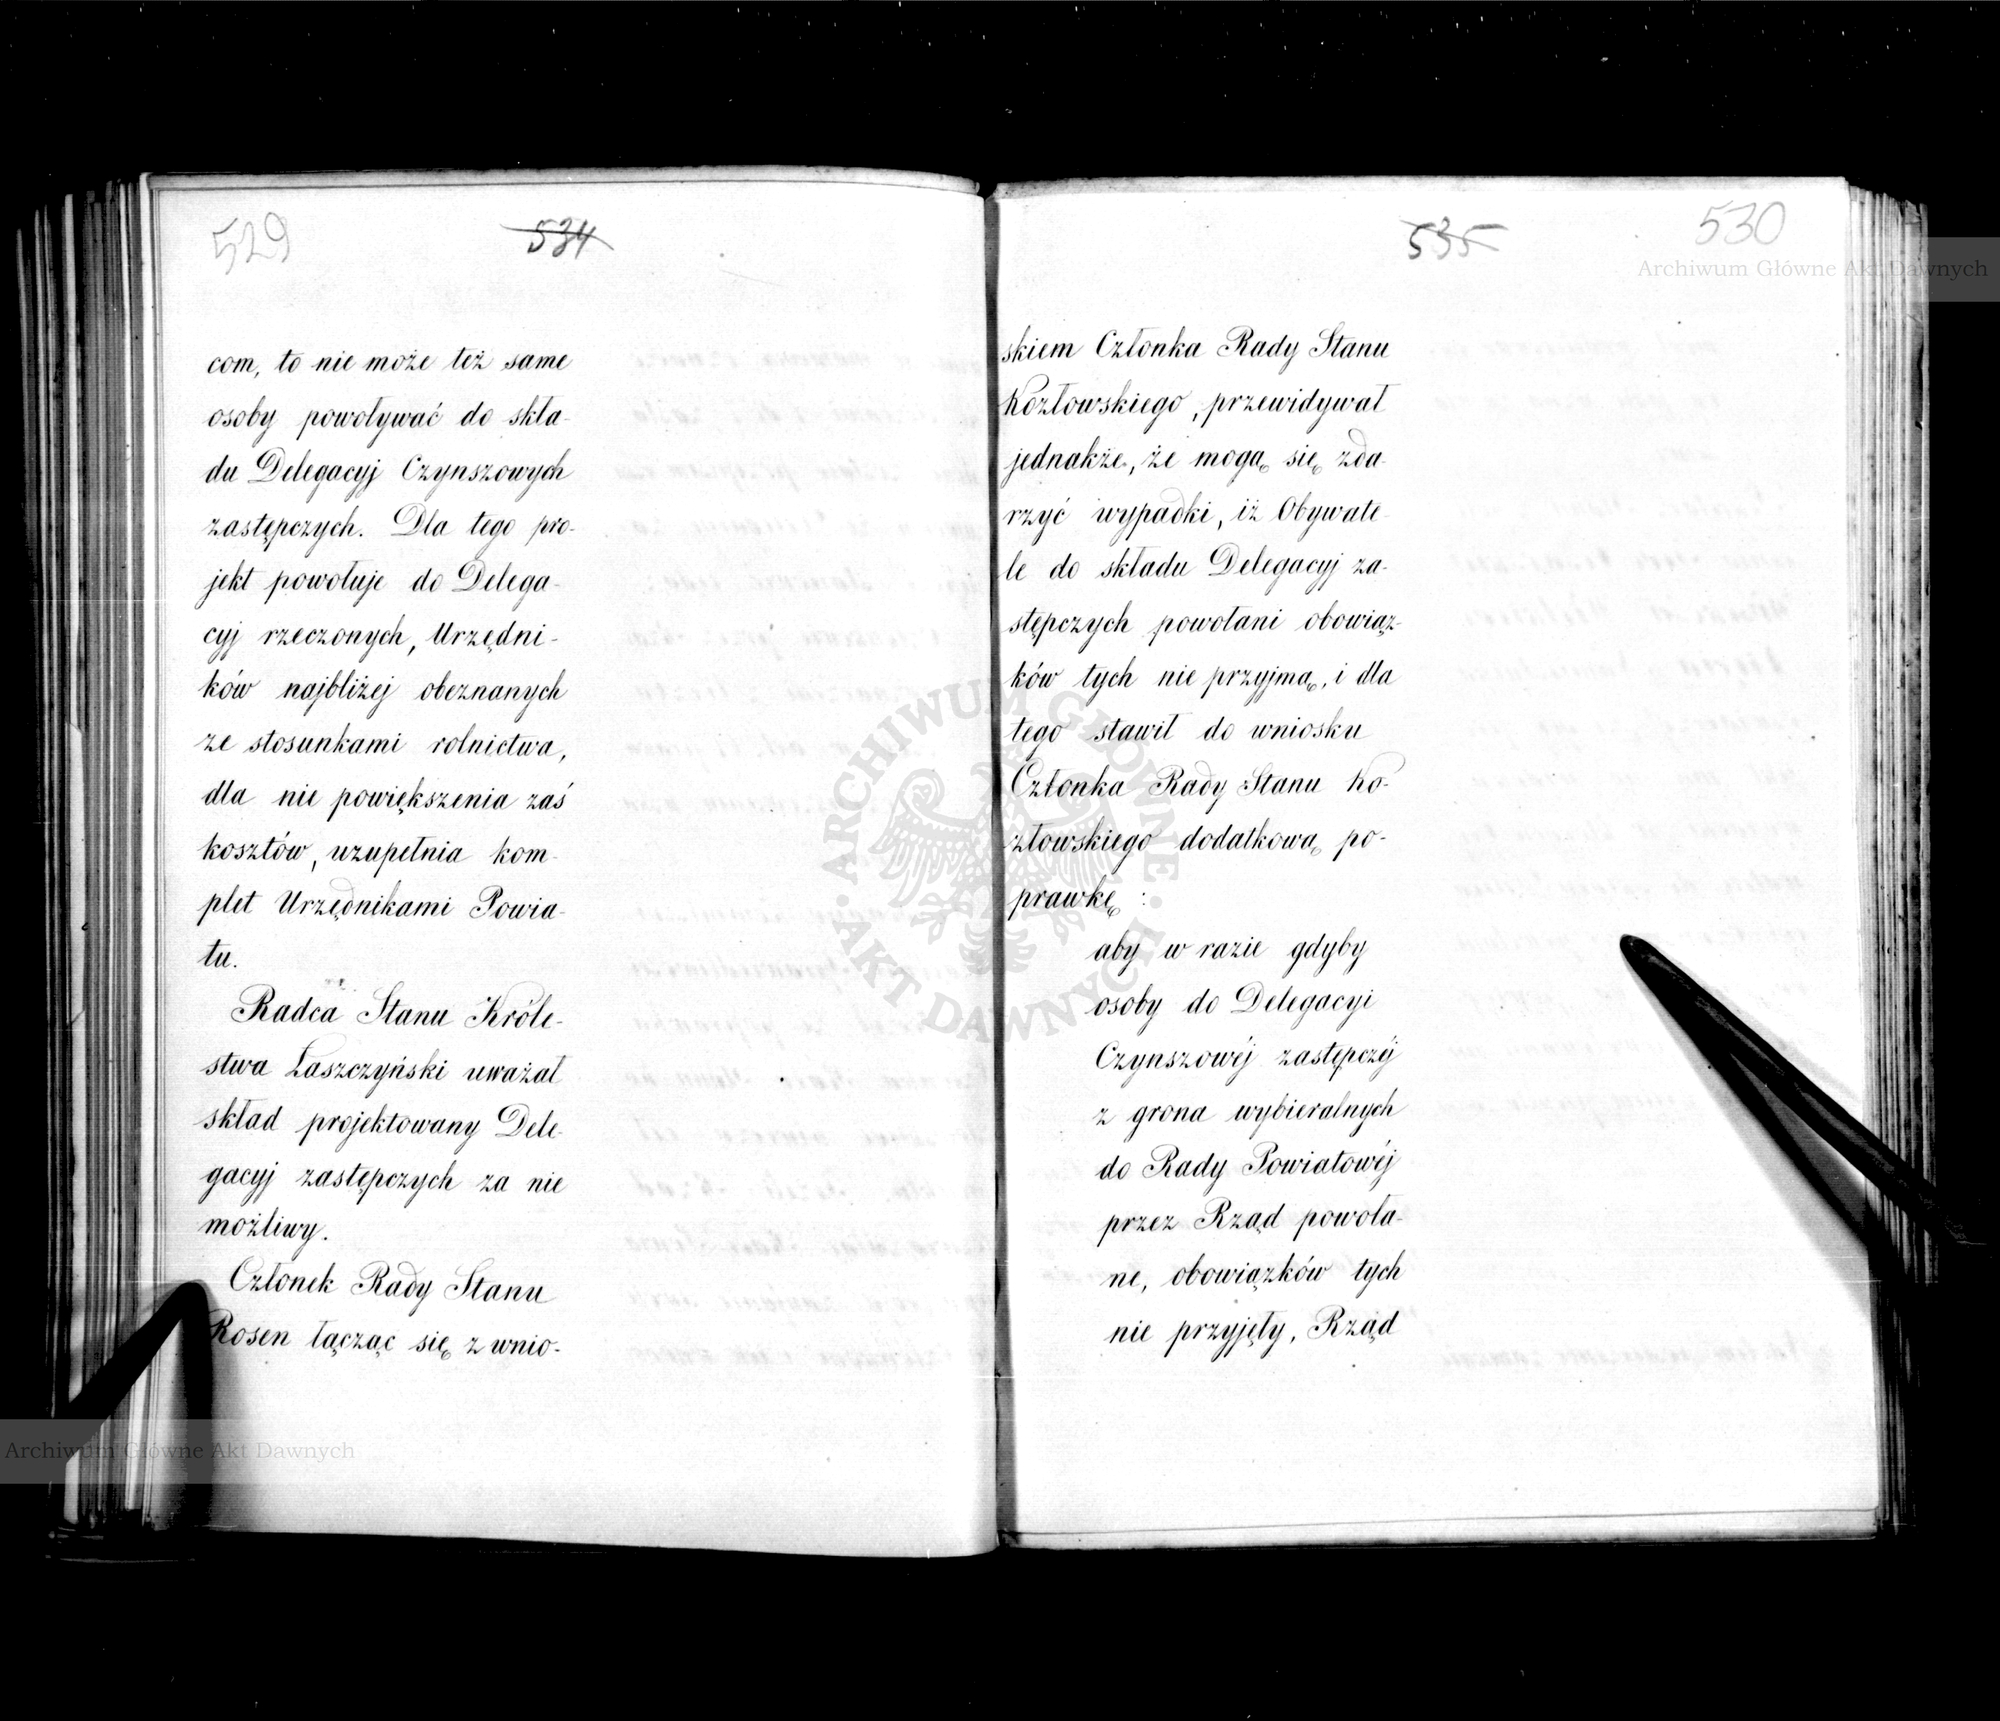 529
534
com, to nie może też same
osoby powoływać do skła-
du Delegacyj Czynszowych
zastępczych. Dla tego pro-
jekt powołuje do Delega-
cyj rzeczonych, Urzędni-
ków najbliżej obeznanych
ze stosunkami rolnictwa,
dla nie powiększenia zaś
kosztów, uzupełnia kom-
plet Urzędnikami Powia-
tu.
Radca Stanu Króle-
stwa Łaszczyński uważał
skład projektowany Dele-
gacyj zastępczych za nie
możliwy.
Członek Rady Stanu
Rosen łącząc się z wnio-
535
530
skiem Członka Rady Stanu
Kozłowskiego, przewidywał
jednakże, że mogą się zda-
rzyć wypadki, iż Obywate-
le do składu Delegacyj za-
stępczych powołani obowiąz-
ków tych nie przyjmą, i dla
tego stawił do wniosku
Członka Rady Stanu Ko-
złowskiego dodatkową po-
prawkę:
aby w razie gdyby
osoby do Delegacyi
Czynszowéj zastępczéj
z grona wybieralnych
do Rady Powiatowéj
przez Rząd powoła-
ne, obowiązków tych
nie przyjęły, Rząd
Archiwum Główne Akt Dawnych
ARCHIWUM GŁÓWNE
AKT DAWNYCH
Archiwum Główne Akt Dawnych